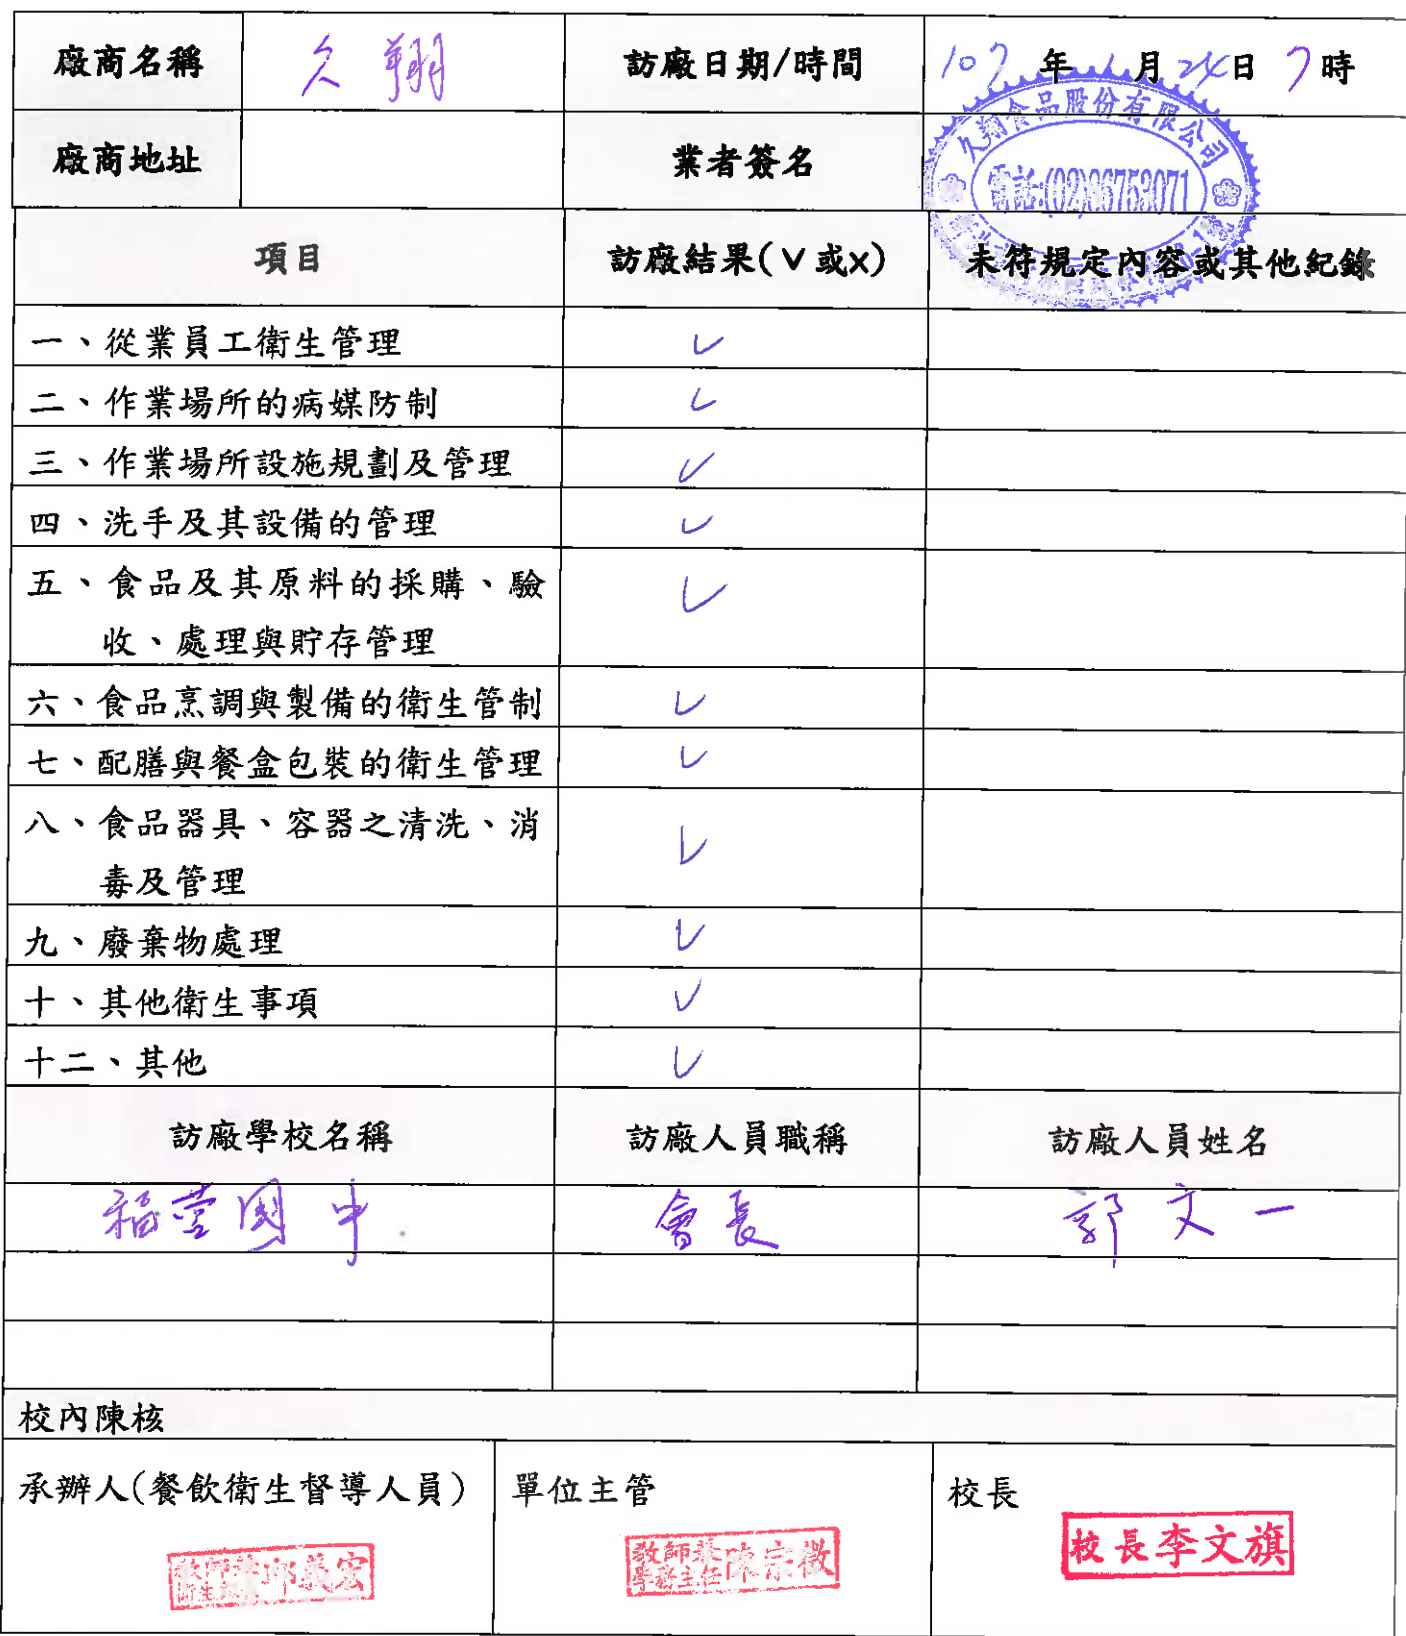 廠商名稱 久翔 訪廠日期/時間 107年1月24日7時
久翔食品股份有限公司
廠商地址 業者簽名
電話:(02)86753071
項目 訪廠結果(V或x) 未符規定內容或其他紀錄
一、從業員工衛生管理 V
二、作業場所的病媒防制 V
三、作業場所設施規劃及管理 V
四、洗手及其設備的管理 V
五、食品及其原料的採購、驗 V
收、處理與貯存管理
六、食品烹調與製備的衛生管制 V
七、配膳與餐盒包裝的衛生管理 V
八、食品器具、容器之清洗、消 V
毒及管理
九、廢棄物處理 V
十、其他衛生事項 V
十二、其他 V
訪廠學校名稱 訪廠人員職稱 訪廠人員姓名
福營國中 會長 郭文一
校內陳核
承辦人(餐飲衛生督導人員) 單位主管 校長
教師兼
學務主任 陳宗徵
校長李文旗